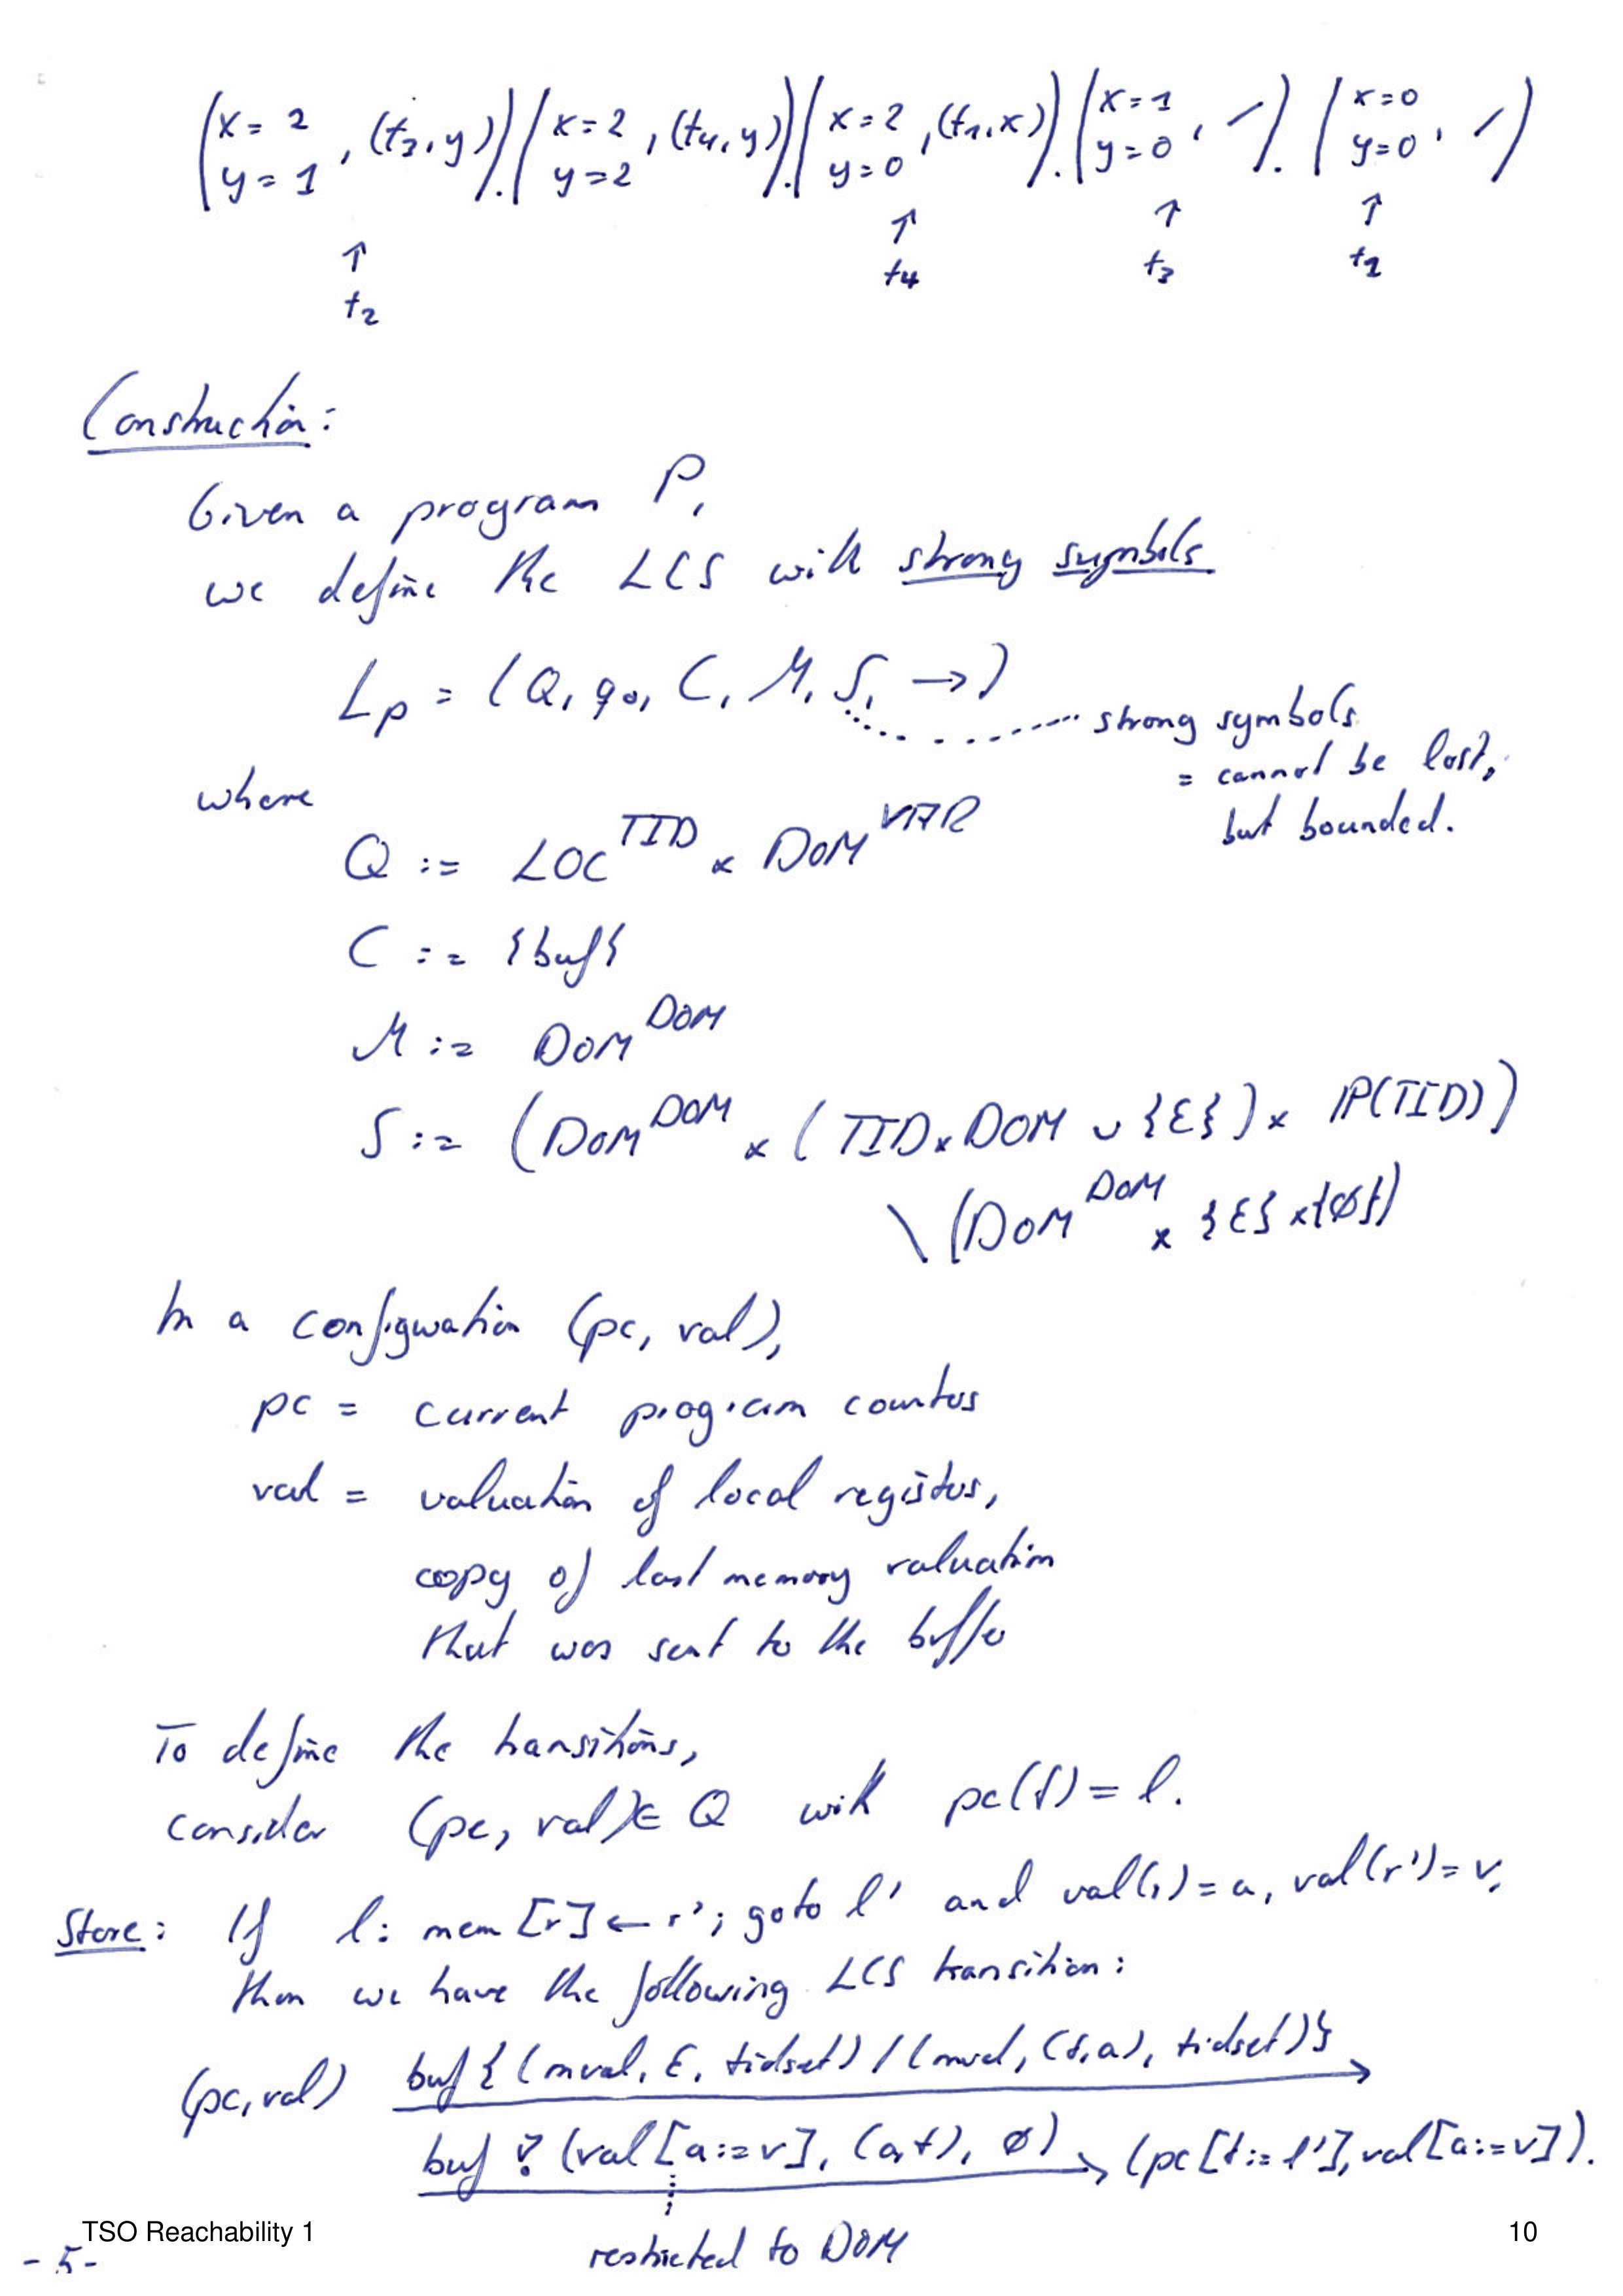 (x=2 y=1, (t3,y)).(x=2 y=2, (t4,y)).(x=2 y=0, (t1,x)).(x=1 y=0, -).(x=0 y=0, -)
↑ t2 ↑ t4 ↑ t3 ↑ t1
Construction:
Given a program P,
we define the LCS with strong symbols
Lp = (Q, q0, C, M, S, →)
strong symbols
= cannot be lost,
but bounded.
where
Q := LOC^TID × DOM^VAR
C := {buf}
M := DOM^DOM
S := (DOM^DOM × (TID × DOM ∪ {ε}) × IP(TID))
\ (DOM^DOM × {ε} × {ø})
In a configuration (pc, val),
pc = current program counters
val = valuation of local registers,
copy of last memory valuation
that was sent to the buffer
To define the transitions,
consider (pc, val) ∈ Q with pc(t) = l.
Store: If l: mem [r] ← r'; goto l' and val(r) = a, val(r') = v,
then we have the following LCS transition:
(pc, val) buf {(mval, ε, tidset) / (mval, (t,a), tidset)}
buf ! (val[a:=v], (a,t), ø) → (pc[t:=l'], val[a:=v]).
restricted to DOM
TSO Reachability 1
10
-5-